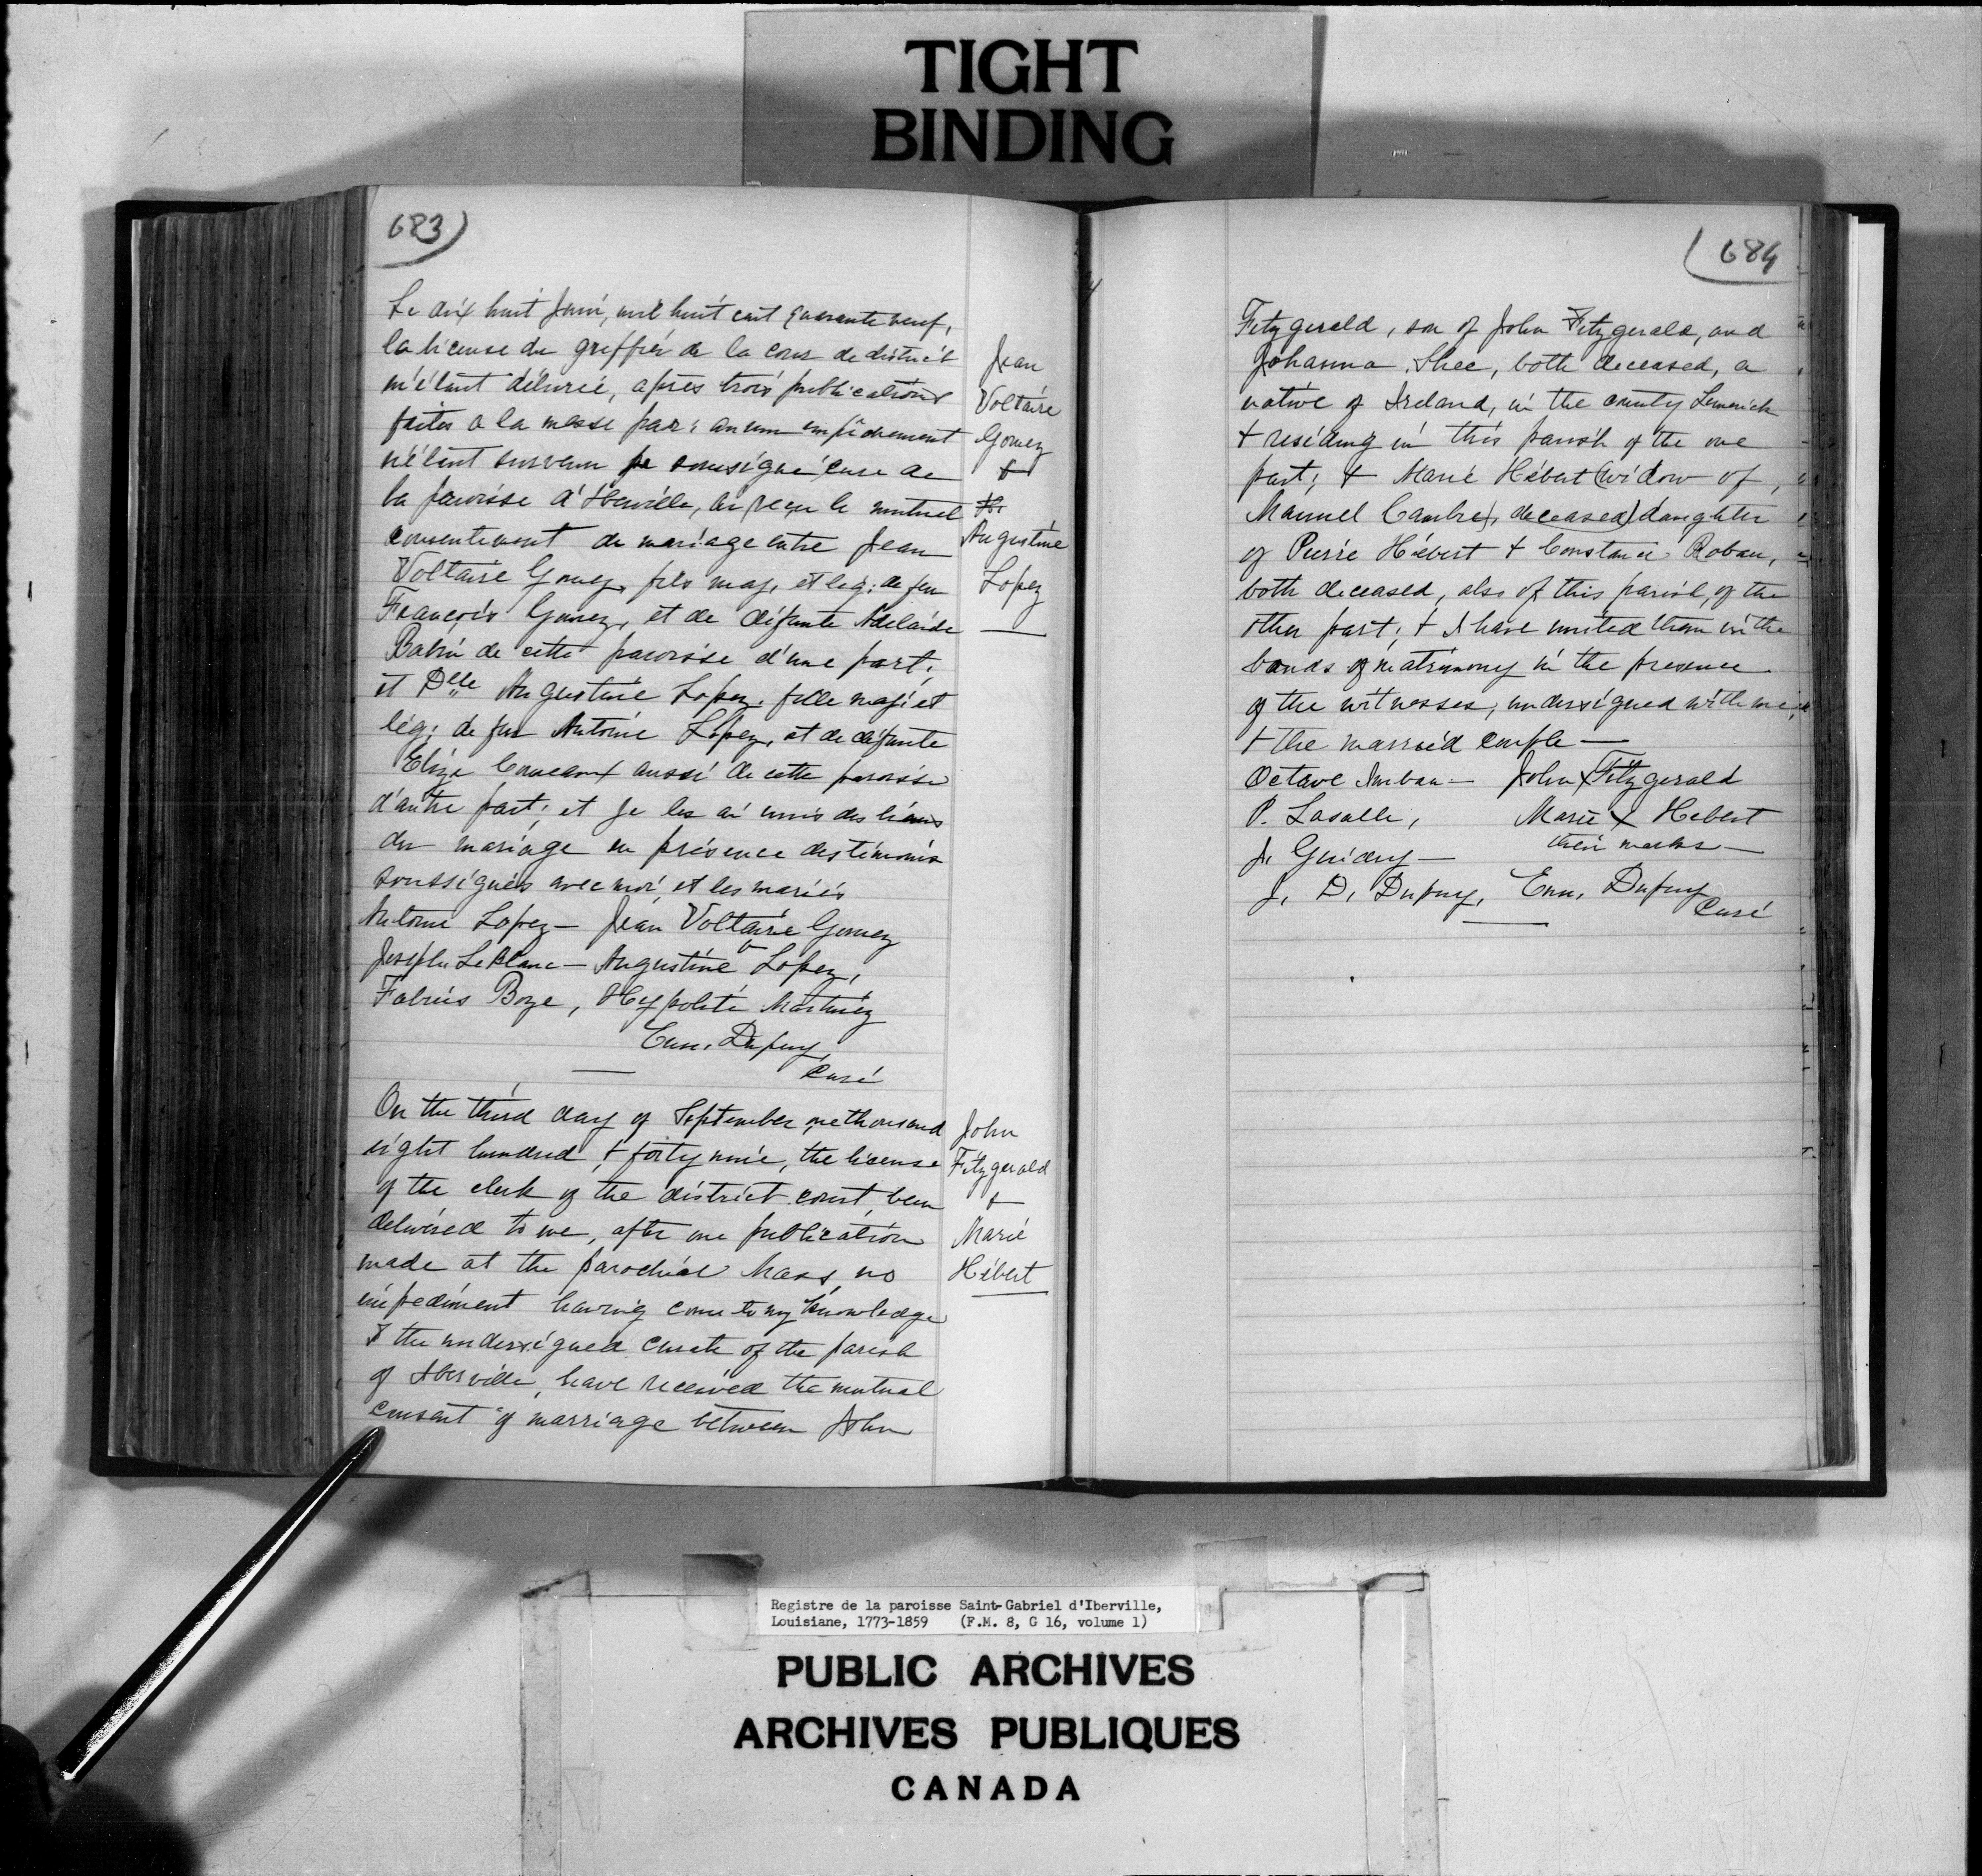 TIGHT
BINDING
683)
Le dix huit Juin, mil huit cent quarante neuf,
la license du greffier de la cour de district
m'étant délivrée, après trois publications
faites a la messe par: aucun empêchement
n'étant survenu je soussigné curé de
la paroisse d'Iberville, ai reçu le mutuel
consentement de mariage entre Jean
Voltaire Gomez, fils maj. et leg: de feu
François Gomez, et de défunte Adelaide
Babin de cette paroisse d'une part;
et Delle Augustine Lopez, fille maj: et
lég: de feu Antoine Lopez, et de défunte
Eliza Comeaux aussi de cette paroisse
d'autre part; et je les ai unis des liens
du mariage en présence des témoins
soussignés avec moi, et les mariés
Antoine Lopez — Jean Voltaire Gomez
Joseph LeBlanc — Augustine + Lopez,
Boze, Hypolite Martinez
Emm. Dupuy,
Curé
Jean
Voltaire
Gomez
&
Augustine
Lopez
On the third day of September, one thousand
eight hundred, & forty nine, the license
of the clerk of the district court, been
delivered to me, after one publication
made at the parochial Mass, no
impediment having come to my knowledge
I the undersigned curate of the parish
of Iberville, have received the mutual
consent of marriage between John
John
Fitzgerald
&
Marie
Hébert
(684
Fitzgerald, son of John Fitzgerald, and
Johanna Shee, both deceased, a
native of Ireland, in the county Limerick
& residing in this parish of the one
part; & Marie Hébert (widow of,
Manuel Cambre, deceased) daughter
of Pierre Hébert & Constance Roban,
both deceased, also of this parish, of the
other part; & I have united them in the
bonds of matrimony in the presence
of the witnesses, undersigned with me,
& the married couple —
Octave — John X Fitzgerald
P. Lasalle, Marie X Hebert
J. Guidry — their marks —
J. D. Dupuy, Emm. Dupuy
Curé
Registre de la paroisse Saint-Gabriel d'Iberville,
Louisiane, 1773-1859 (F.M. 8, G 16, volume 1)
PUBLIC ARCHIVES
ARCHIVES PUBLIQUES
CANADA